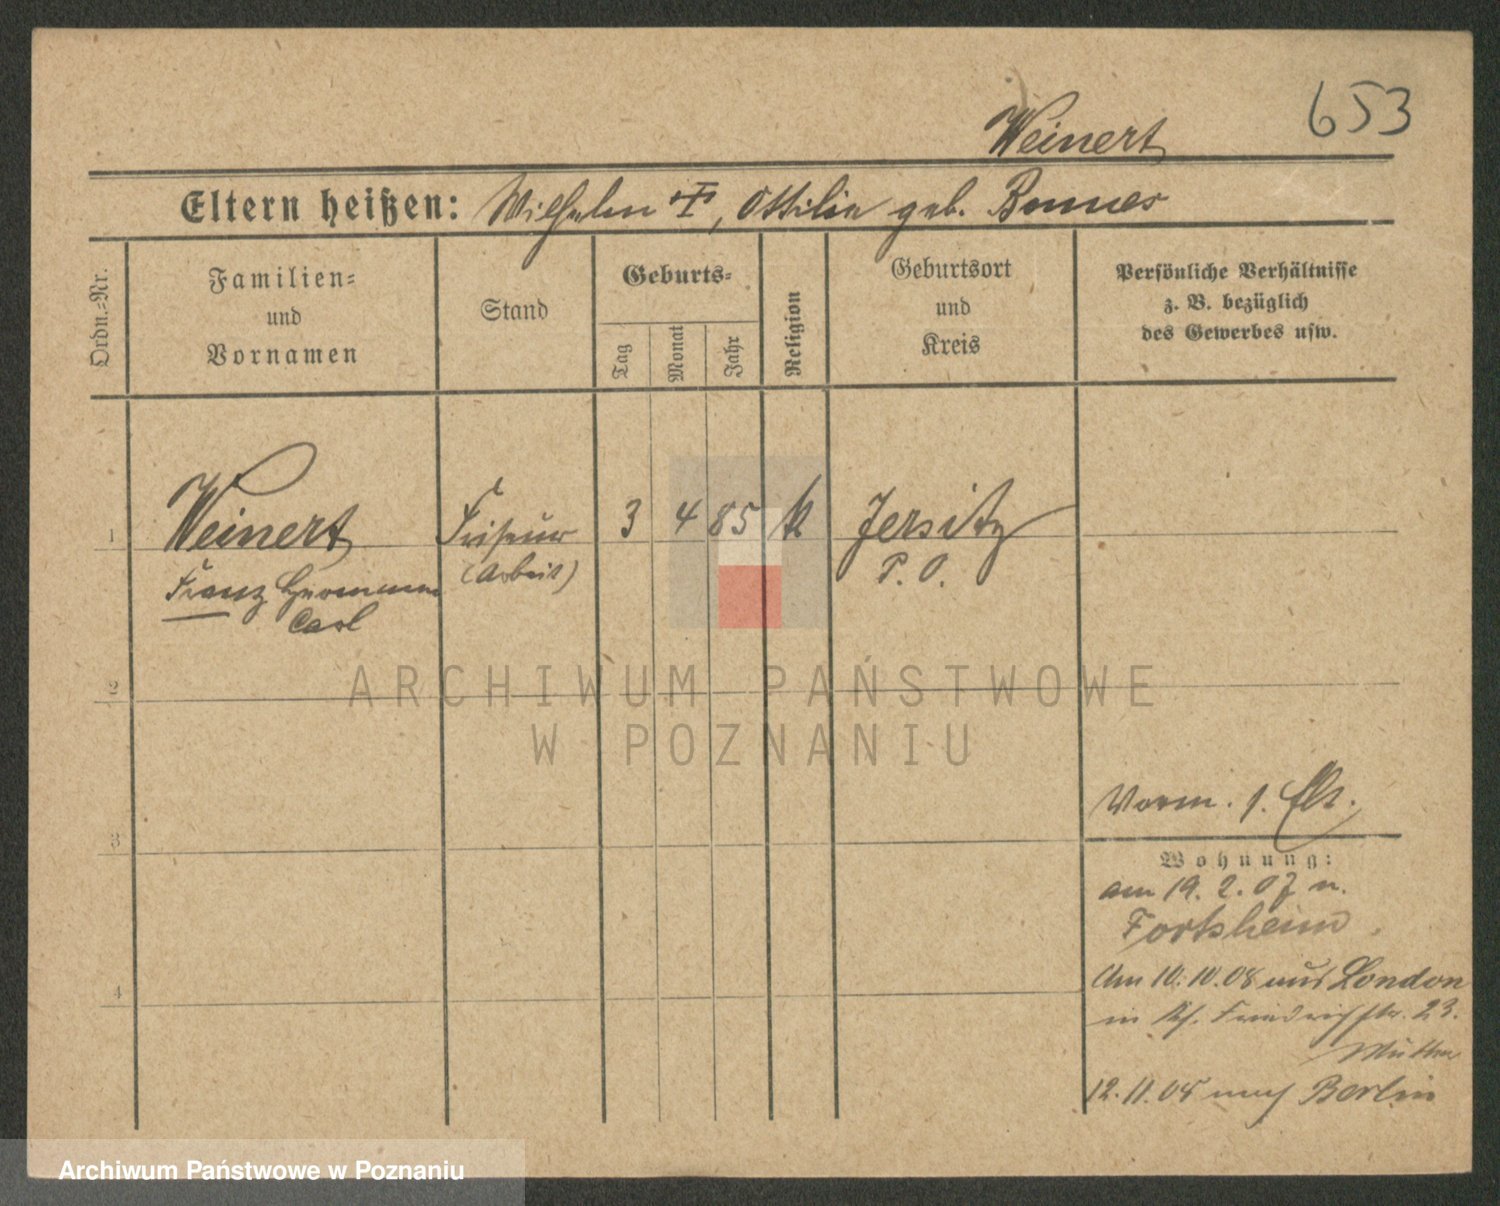 653
Weinert
Eltern heißen: Wilhelm †, Ottilie geb. Bonnes
Ordn.-Nr.
Familien-
und
Vornamen
Stand
Geburts-
Tag
Monat
Jahr
Religion
Geburtsort
und
Kreis
Persönliche Verhältnisse
z. B. bezüglich
des Gewerbes usw.
1
Weinert
Franz Hermann
Carl
Friseur
(Arbeit)
3 4 85 k
Jersitz
P. O.
2
3
4
Vorm. 1.
Wohnung:
am 19. 2. 07 n.
Am 10.10.08 aus London
in Friedrichstr. 23.
Mutter
12.11.08 nach Berlin
ARCHIWUM PAŃSTWOWE
W POZNANIU
Archiwum Państwowe w Poznaniu